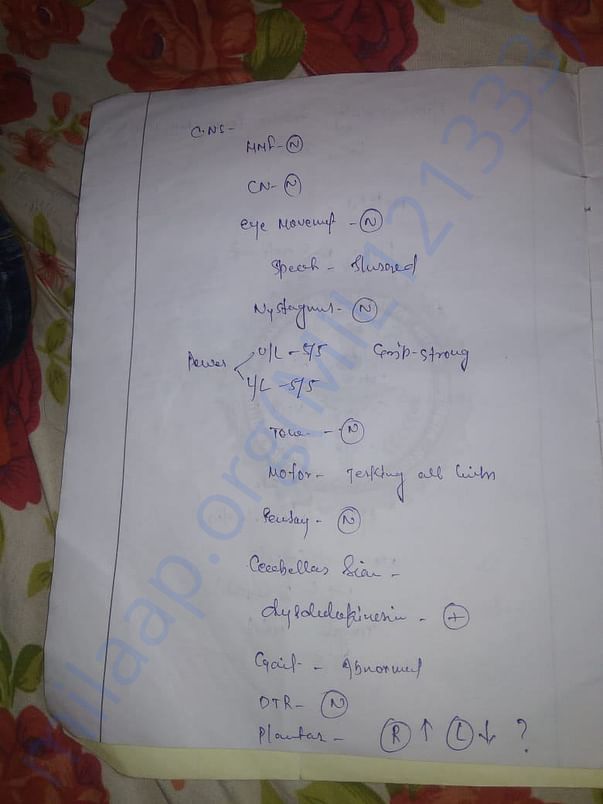 C.N.S -
HMF - (N)
CN - (N)
eye Movement - (N)
Speech - Slurred
Nystagmus - (N)
Power U/L - 5/5 Grip - Strong
L/L - 5/5
Tone - (N)
Motor - Jerking all limbs
Sensory - (N)
Cerebellar Sign -
dysdiadokinesia - (+)
Gait - Abnormal
DTR - (N)
Plantar - (R) ↑ (L) ↓ ?
Milaap.org(MIL1213331)